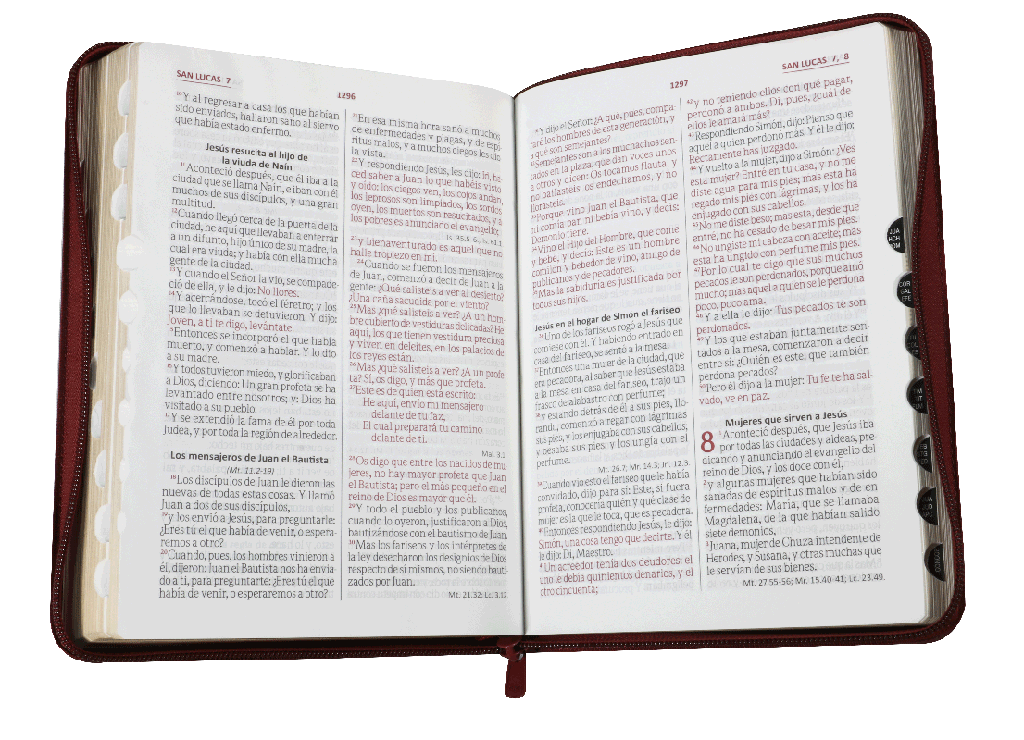 SAN LUCAS 7
1296
10 Y al regresar a casa los que habían
sido enviados, hallaron sano al siervo
que había estado enfermo.
Jesús resucita al hijo de
la viuda de Naín
11 Aconteció después, que él iba a la
ciudad que se llama Naín, e iban con él
muchos de sus discípulos, y una gran
multitud.
12 Cuando llegó cerca de la puerta de la
ciudad, he aquí que llevaban a enterrar
a un difunto, hijo único de su madre, la
cual era viuda; y había con ella mucha
gente de la ciudad.
13 Y cuando el Señor la vio, se compade-
ció de ella, y le dijo: No llores.
14 Y acercándose, tocó el féretro; y los
que lo llevaban se detuvieron. Y dijo:
Joven, a ti te digo, levántate.
15 Entonces se incorporó el que había
muerto, y comenzó a hablar. Y lo dio
a su madre.
16 Y todos tuvieron miedo, y glorificaban
a Dios, diciendo: Un gran profeta se ha
levantado entre nosotros; y: Dios ha
visitado a su pueblo
17 Y se extendió la fama de él por toda
Judea, y por toda la región de alrededor.
Los mensajeros de Juan el Bautista
(Mt. 11.2-19)
18 Los discípulos de Juan le dieron las
nuevas de todas estas cosas. Y llamó
Juan a dos de sus discípulos,
19 y los envió a Jesús, para preguntarle:
¿Eres tú el que había de venir, o espera-
remos a otro?
20 Cuando, pues, los hombres vinieron a
él, dijeron: Juan el Bautista nos ha envia-
do a ti, para preguntarte: ¿Eres tú el que
había de venir, o esperaremos a otro?
21 En esa misma hora sanó a muchos
de enfermedades y plagas, y de espí-
ritus malos, y a muchos ciegos les dio
la vista.
22 Y respondiendo Jesús, les dijo: Id, ha-
ced saber a Juan lo que habéis visto
y oído: los ciegos ven, los cojos andan,
los leprosos son limpiados, los sordos
oyen, los muertos son resucitados, y a
los pobres es anunciado el evangelio;
Is. 35.5-6; Is. 61.1
23 y bienaventurado es aquel que no
halle tropiezo en mí.
24 Cuando se fueron los mensajeros
de Juan, comenzó a decir de Juan a la
gente: ¿Qué salisteis a ver al desierto?
¿Una caña sacudida por el viento?
25 Mas ¿qué salisteis a ver? ¿A un hom-
bre cubierto de vestiduras delicadas? He
aquí, los que tienen vestidura preciosa
y viven en deleites, en los palacios de
los reyes están.
26 Mas ¿qué salisteis a ver? ¿A un profe-
ta? Sí, os digo, y más que profeta.
27 Este es de quien está escrito:
He aquí, envío mi mensajero
delante de tu faz,
El cual preparará tu camino
delante de ti.
Mal. 3.1
28 Os digo que entre los nacidos de mu-
jeres, no hay mayor profeta que Juan
el Bautista; pero el más pequeño en el
reino de Dios es mayor que él.
29 Y todo el pueblo y los publicanos,
cuando lo oyeron, justificaron a Dios,
bautizándose con el bautismo de Juan.
30 Mas los fariseos y los intérpretes de
la ley desecharon los designios de Dios
respecto de sí mismos, no siendo bauti-
zados por Juan.
Mt. 21.32; Lc. 3.12
1297
SAN LUCAS 7, 8
31 Y dijo el Señor: ¿A qué, pues, compa-
raré los hombres de esta generación, y
a qué son semejantes?
32 Semejantes son a los muchachos sen-
tados en la plaza, que dan voces unos
a otros y dicen: Os tocamos flauta, y
no bailasteis; os endechamos, y no
llorasteis.
33 Porque vino Juan el Bautista, que
ni comía pan ni bebía vino, y decís:
Demonio tiene.
34 Vino el Hijo del Hombre, que come
y bebe, y decís: Este es un hombre
comilón y bebedor de vino, amigo de
publicanos y de pecadores.
35 Mas la sabiduría es justificada por
todos sus hijos.
Jesús en el hogar de Simón el fariseo
36 Uno de los fariseos rogó a Jesús que
comiese con él. Y habiendo entrado en
casa del fariseo, se sentó a la mesa.
37 Entonces una mujer de la ciudad, que
era pecadora, al saber que Jesús estaba
a la mesa en casa del fariseo, trajo un
frasco de alabastro con perfume;
38 y estando detrás de él a sus pies, llo-
rando, comenzó a regar con lágrimas
sus pies, y los enjugaba con sus cabellos,
y besaba sus pies, y los ungía con el
perfume.
Mt. 26.7; Mr. 14.3; Jn. 12.3
39 Cuando vio esto el fariseo que le había
convidado, dijo para sí: Este, si fuera
profeta, conocería quién y qué clase de
mujer es la que le toca, que es pecadora.
40 Entonces respondiendo Jesús, le dijo:
Simón, una cosa tengo que decirte. Y él
le dijo: Di, Maestro.
41 Un acreedor tenía dos deudores: el
uno le debía quinientos denarios, y el
otro cincuenta;
42 y no teniendo ellos con qué pagar,
perdonó a ambos. Di, pues, ¿cuál de
ellos le amará más?
43 Respondiendo Simón, dijo: Pienso que
aquel a quien perdonó más. Y él le dijo:
Rectamente has juzgado.
44 Y vuelto a la mujer, dijo a Simón: ¿Ves
esta mujer? Entré en tu casa, y no me
diste agua para mis pies; mas esta ha
regado mis pies con lágrimas, y los ha
enjugado con sus cabellos.
45 No me diste beso; mas esta, desde que
entré, no ha cesado de besar mis pies.
46 No ungiste mi cabeza con aceite; mas
esta ha ungido con perfume mis pies.
47 Por lo cual te digo que sus muchos
pecados le son perdonados, porque amó
mucho; mas aquel a quien se le perdona
poco, poco ama.
48 Y a ella le dijo: Tus pecados te son
perdonados.
49 Y los que estaban juntamente sen-
tados a la mesa, comenzaron a decir
entre sí: ¿Quién es este, que también
perdona pecados?
50 Pero él dijo a la mujer: Tu fe te ha sal-
vado, ve en paz.
Mujeres que sirven a Jesús
8 1 Aconteció después, que Jesús iba
por todas las ciudades y aldeas, pre-
dicando y anunciando el evangelio del
reino de Dios, y los doce con él,
2 y algunas mujeres que habían sido
sanadas de espíritus malos y de en-
fermedades: María, que se llamaba
Magdalena, de la que habían salido
siete demonios,
3 Juana, mujer de Chuza intendente de
Herodes, y Susana, y otras muchas que
le servían de sus bienes.
Mt. 27.55-56; Mr. 15.40-41; Lc. 23.49.